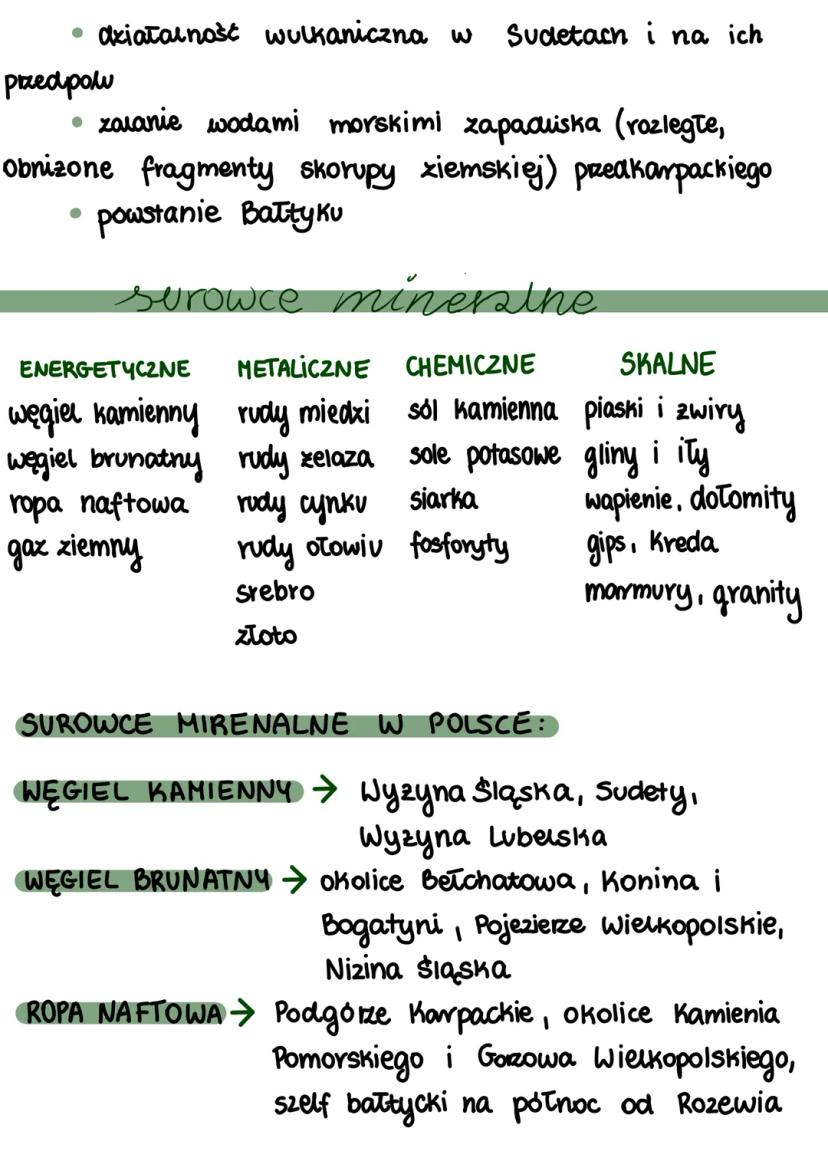 • działalność wulkaniczna w Sudetach i na ich
przedpolu
• zalanie wodami morskimi zapadliska (rozległe,
obniżone fragmenty skorupy ziemskiej) przedkarpackiego
• powstanie Bałtyku
surowce mineralne
ENERGETYCZNE METALICZNE CHEMICZNE SKALNE
węgiel kamienny rudy miedzi sól kamienna piaski i żwiry
węgiel brunatny rudy żelaza sole potasowe gliny i iły
ropa naftowa rudy cynku siarka wapienie, dołomity
gaz ziemny rudy ołowiu fosforyty gips, kreda
srebro marmury, granity
złoto
SUROWCE MIRENALNE W POLSCE:
WĘGIEL KAMIENNY → Wyżyna Śląska, Sudety,
Wyżyna Lubelska
WĘGIEL BRUNATNY → okolice Bełchatowa, Konina i
Bogatyni, Pojezierze Wielkopolskie,
Nizina Śląska
ROPA NAFTOWA → Podgórze Karpackie, okolice Kamienia
Pomorskiego i Gorzowa Wielkopolskiego,
szelf bałtycki na północ od Rozewia